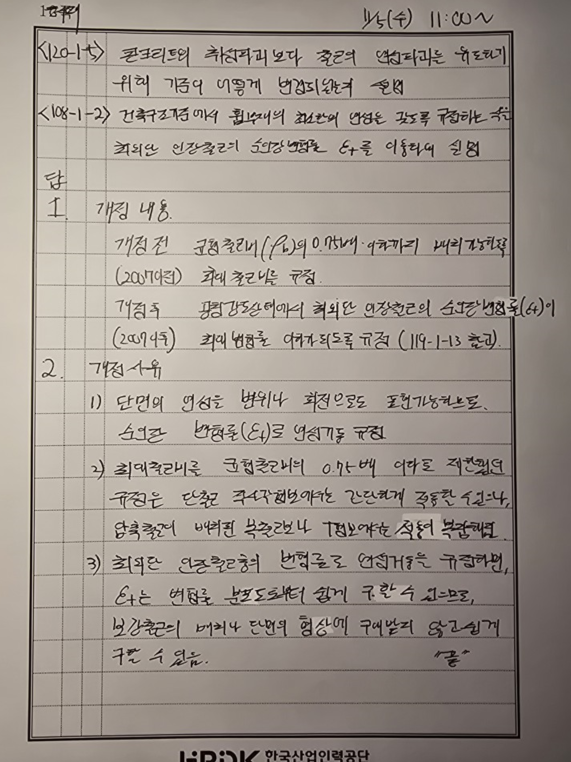 11/5(수) 11:00~
<120-1-5> 콘크리트의 취성파괴보다 철근의 연성파괴를 유도하기
위해 기준이 어떻게 변경되었는지 설명
<108-1-2> 건축구조기준에서 휨부재의 최소한의 연성을 갖도록 규정하는
최외단 인장철근의 순인장변형률 εt를 이용하여 설명
답
1. 개정 내용
개정 전 균형철근비(ρb)의 0.75배 이하까지 배치 가능하도록
(2007이전) 최대 철근비를 규정
개정 후 공칭강도상태에서 최외단 인장철근의 순인장변형률(εt)이
(2007이후) 최대변형률 이하가 되도록 규정 (119-1-13 출제)
2. 개정사유
1) 단면의 연성을 변위나 회전으로도 표현가능하므로
순인장 변형률(εt)로 연성거동 규정
2) 최대철근비를 균형철근비의 0.75배 이하로 제한했던
규정은 단철근 직사각형보에서는 간단하게 적용할 수 있으나,
압축철근이 배치된 복철근보나 T형보에서는 적용이 복잡해짐
3) 최외단 인장철근의 변형률로 연성거동을 규정하면,
εt는 변형률 분포도로부터 쉽게 구할 수 있으므로,
보강철근의 배치나 단면의 형상에 구애받지 않고 쉽게
구할 수 있음. "끝"
HRDK 한국산업인력공단